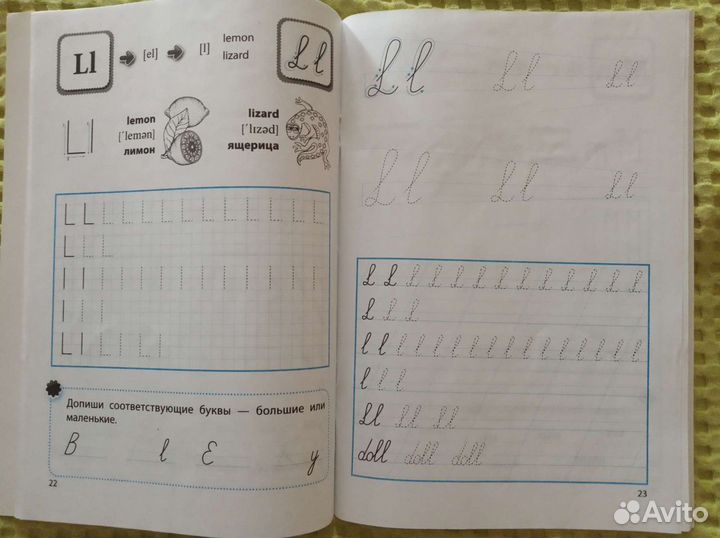 Ll [el] [l] lemon
lizard
L l
Ll
lemon
['lemən]
лимон
lizard
['lızəd]
ящерица
L L L L L L L L L L L L L
L L L
l l l l l l l l l l l l l
l l l
L l L l L l
Допиши соответствующие буквы — большие или
маленькие.
B l E y
22
L l Ll Ll
Ll Ll Ll
L L L L L L L L L L L L L
L L L
l l l l l l l l l l l l l l l l
l l l
Ll Ll Ll
doll doll doll
23
Avito